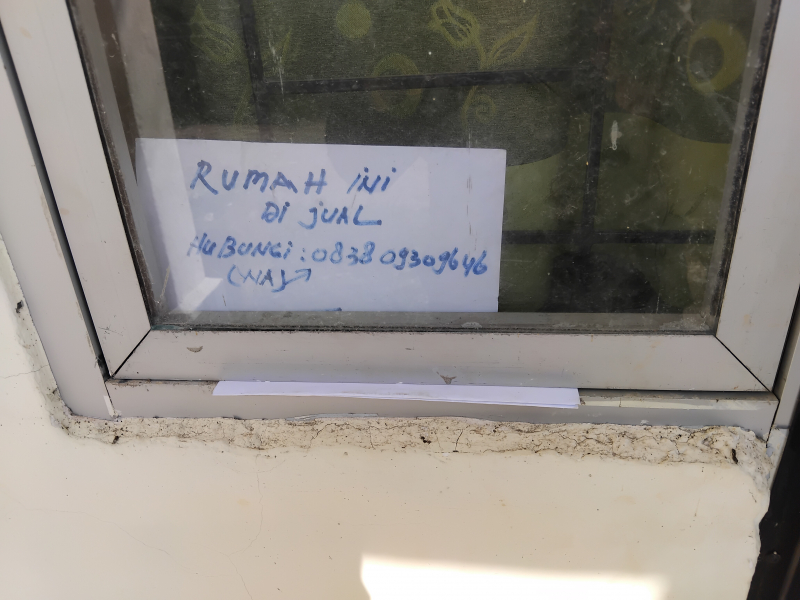 RUMAH INI
DI JUAL
HUBUNGI : 083809309646
(WA)